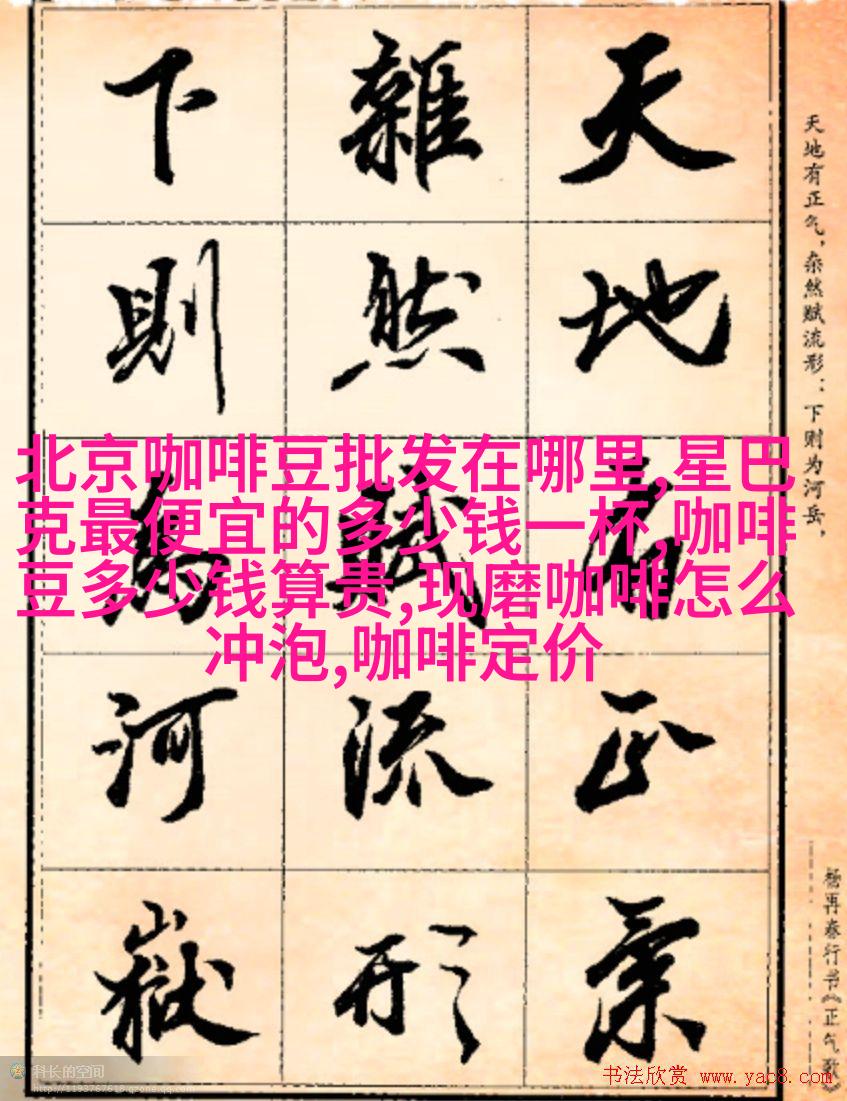 天地有正氣
雜然賦流形
下則為河嶽
天地有正气，杂然赋流形：下则为河岳，
杨再春行书《正气歌》
北京咖啡豆批发在哪里,星巴
克最便宜的多少钱一杯,咖啡
豆多少钱算贵,现磨咖啡怎么
冲泡,咖啡定价
科长的空间
http://1193767618.qzone.qq.com
书法欣赏 www.yac8.com